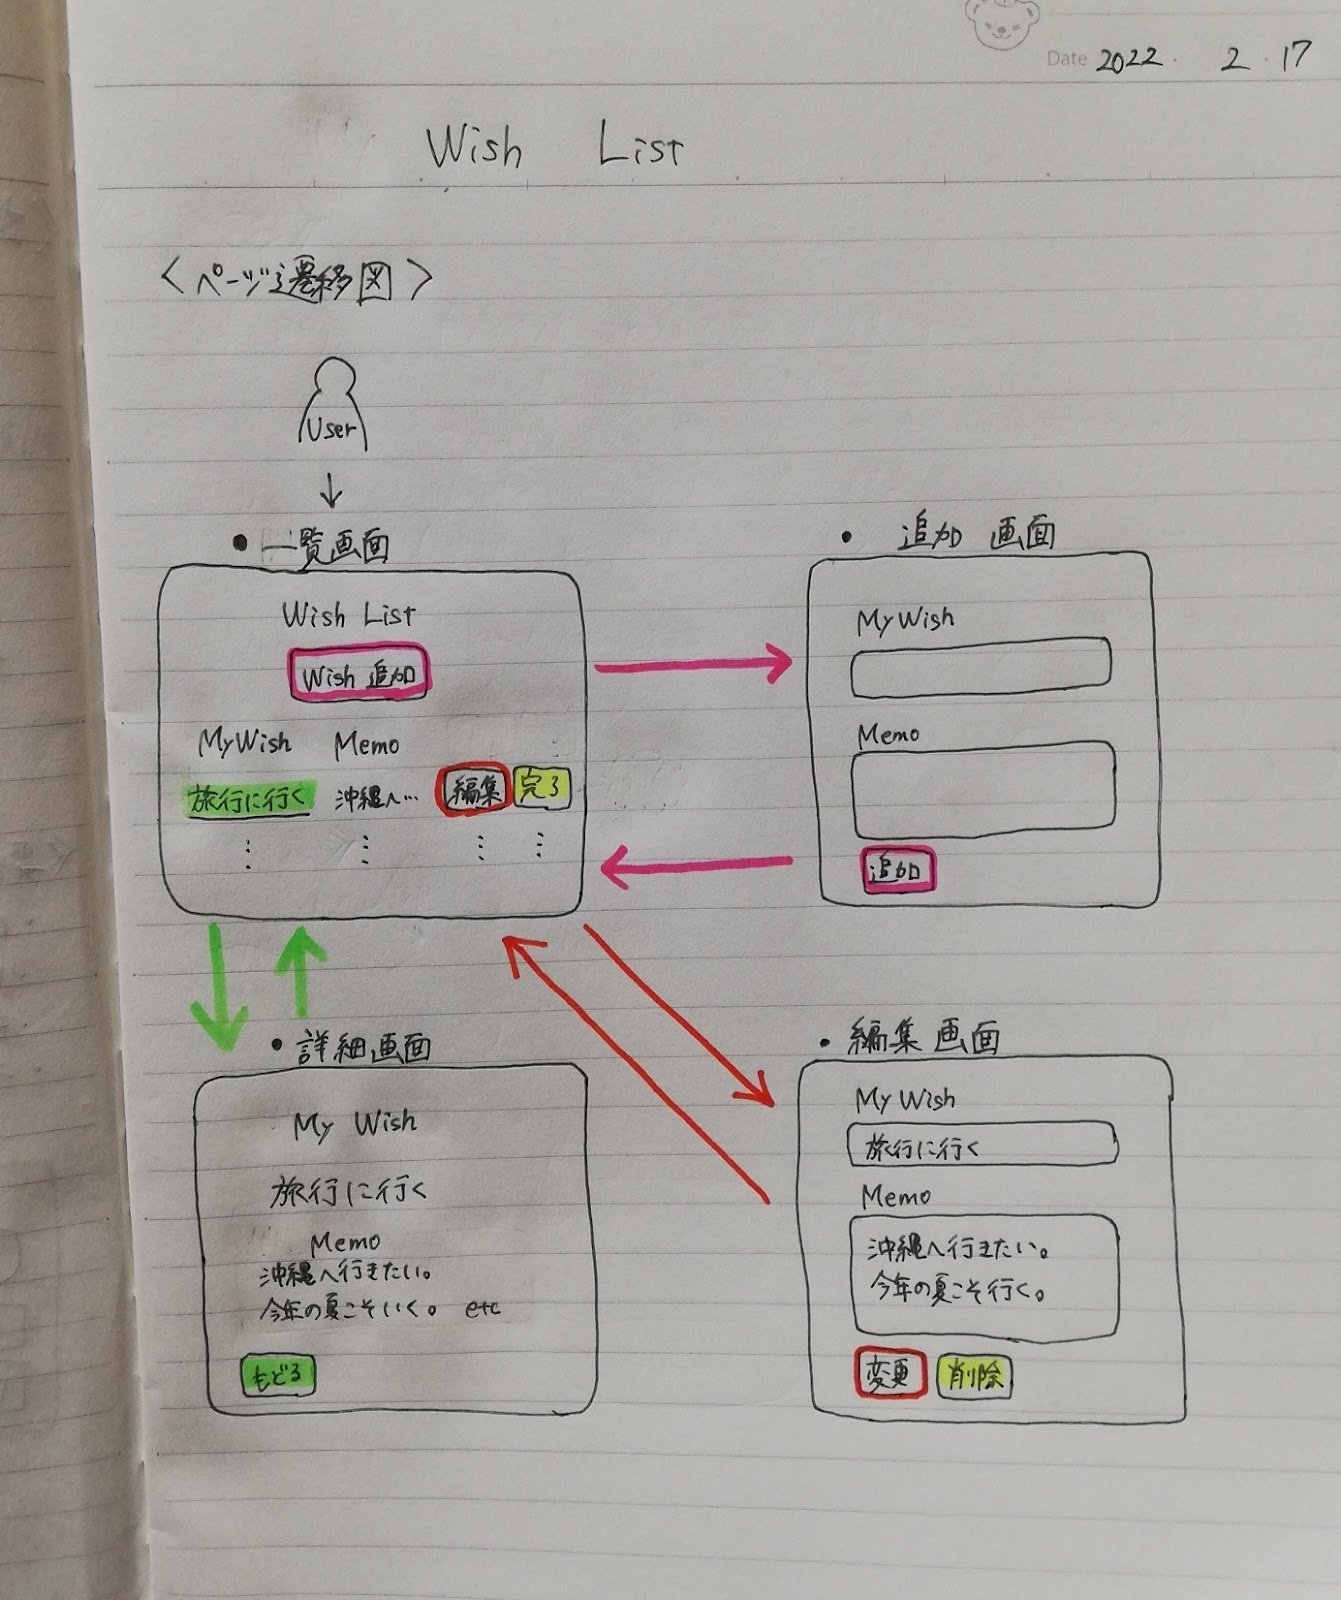 Date 2022. 2. 17
Wish List
<ページ遷移図>
User
• 一覧画面
Wish List
Wish 追加
MyWish Memo
旅行に行く 沖縄へ… 編集 完了
• 追加 画面
MyWish
Memo
追加
• 詳細画面
My Wish
旅行に行く
Memo
沖縄へ行きたい。
今年の夏こそいく。 etc
もどる
• 編集画面
My Wish
旅行に行く
Memo
沖縄へ行きたい。
今年の夏こそ行く。
変更 削除